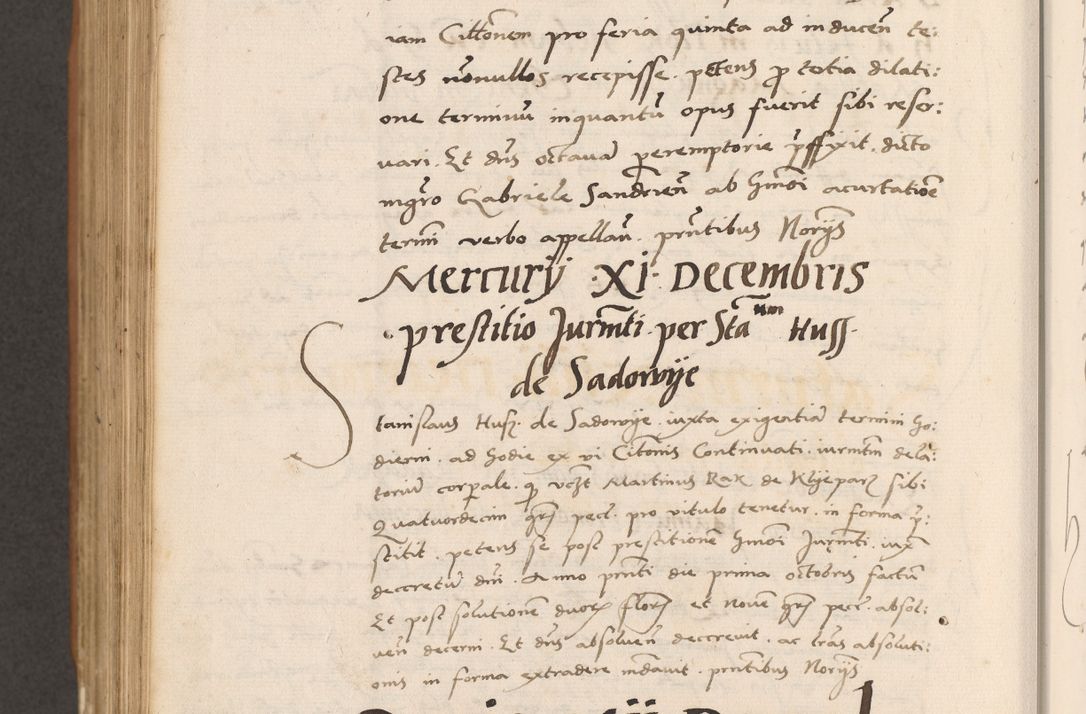 iam Cittonem pro feria quinta ad inducen̄ te:
stes nōnullos recepisse. petens p̱ tertia dilati:
one terminū inquantū opus fuerit sibi reser:
vari. Et dn̄s octavā peremptorie p̄ffixit. dicto
mgr̄o Gabriele Sandrien̄ ab hm̄oi acurtatiōe
termi verbo appellan̄. prn̄tibus Norijs
Mercurij · XI · Decembris
prestitio Jurm̄ti per Stanm Huss
de Sadowije
Stanislaus Husz de Sadowije. iuxta exigentiā termini ho:
dierni. ad hodie ex vi Cit̄onis Continuati. iurm̄tm dela:
torium corp̱ale. q̱ Martinus Rak de Klijeparz sibi
Quatuordecim gr̄ pec̄. pro vitulo tenetur. in forma p̄:
stitit. petens se post prestitionē hm̄oi Jurm̄ti. iux̄
decretū dni. Anno prn̄ti die prima octobris factū
Et post solutionem duorꝝ florꝫ et novē gr̄ pec̄. absol:
ven̄ decerni. Et dn̄s absolven̄ decrevit. ac lr̄as absoluti:
onis in forma extradere mādavit. prn̄tibus Norijs